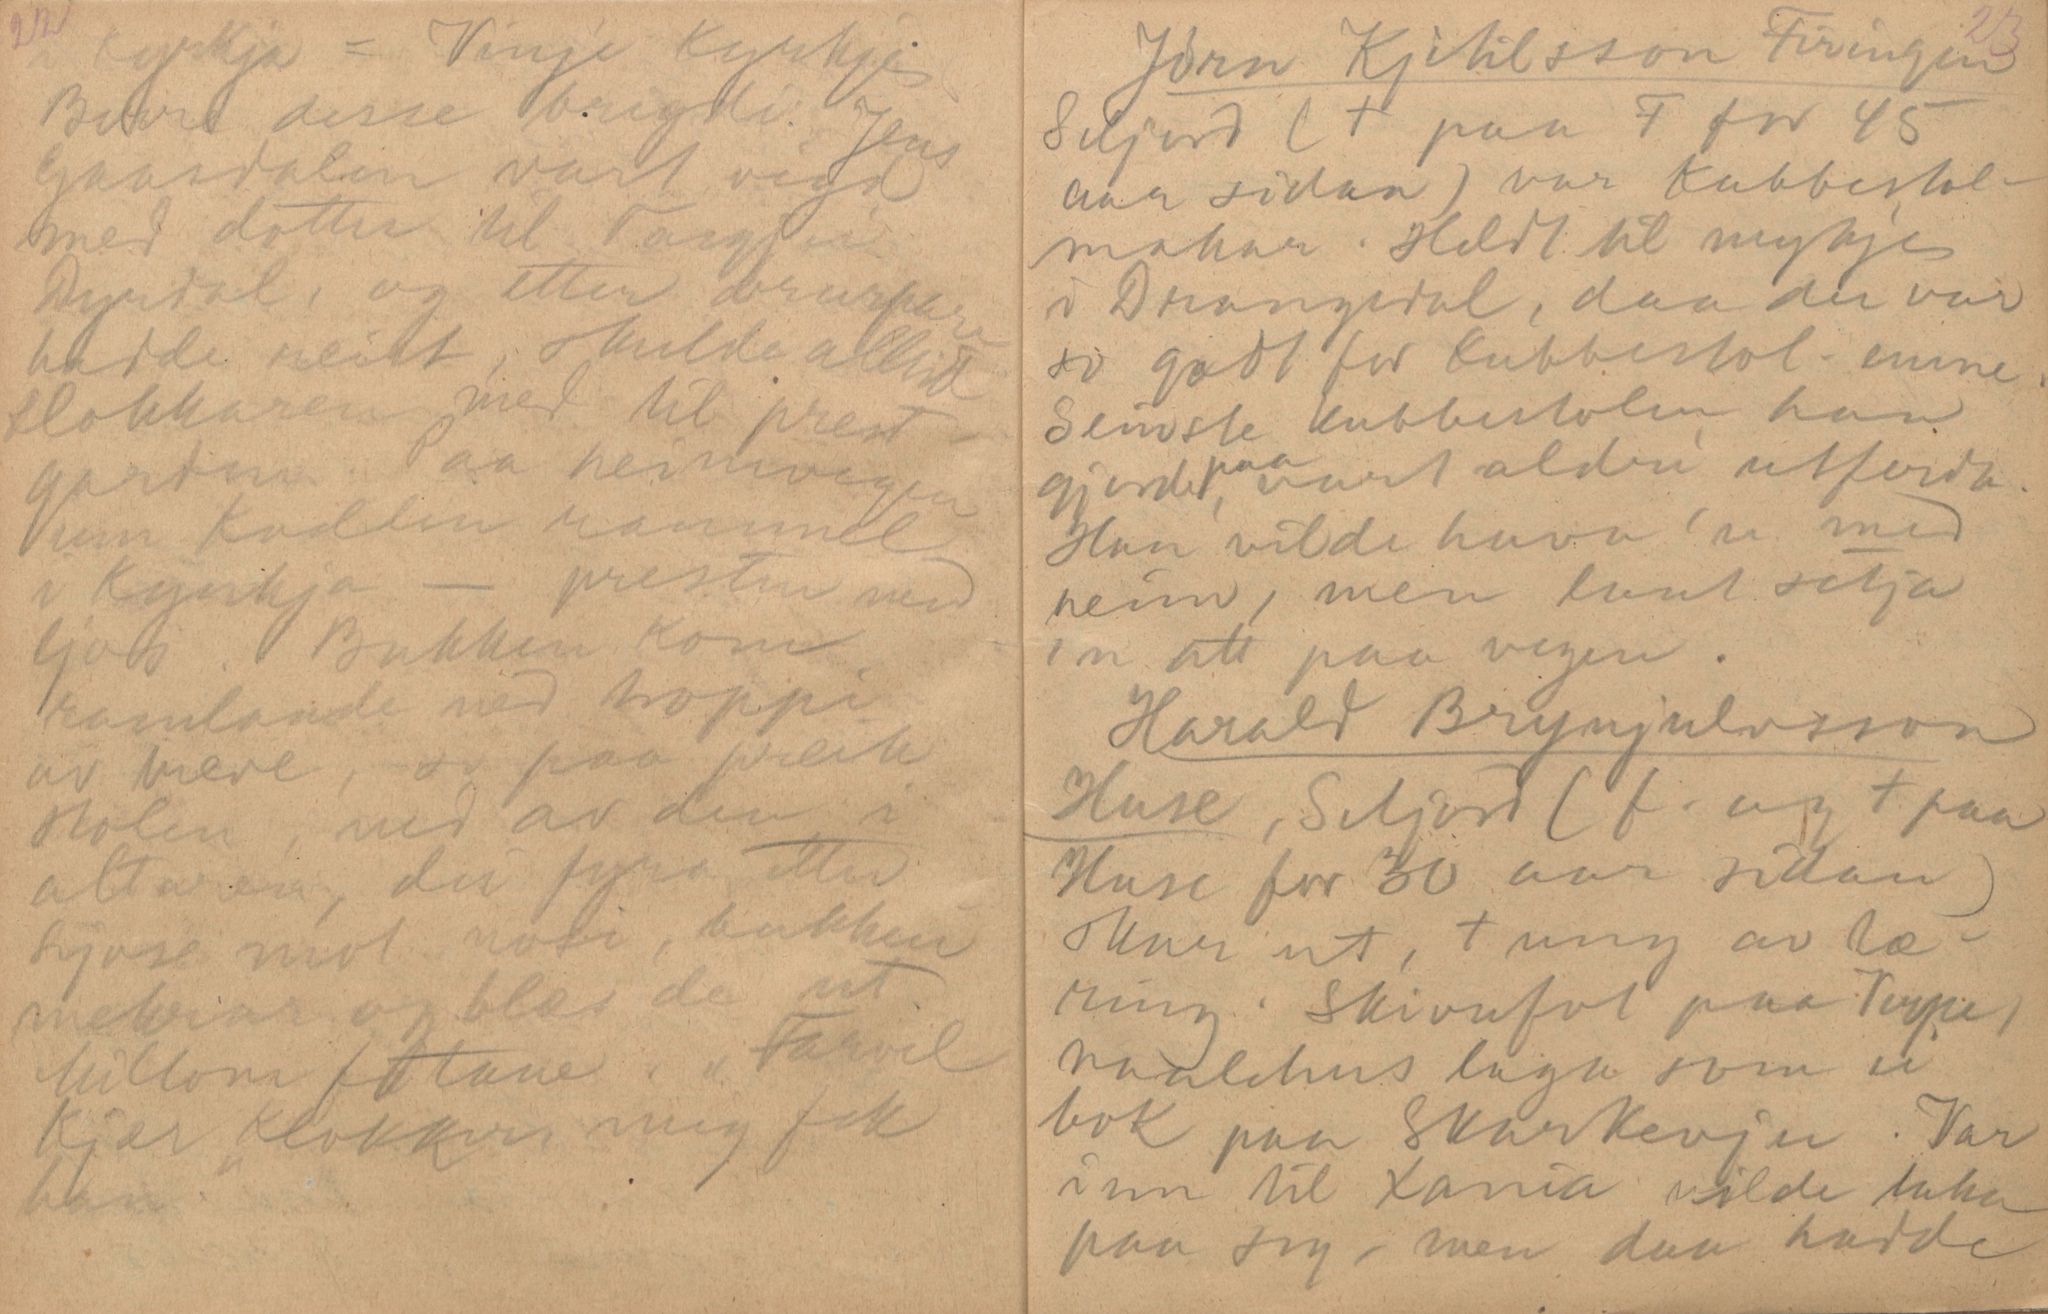 22
i Kyrkja = Vinje Kyrkje
Burt desse bugdi. Jens
Gaasdalen vart vigd
med dotter til Targjei
Dyrdal, og etter brurpare
hadde reist, skulde alltid
klokkaren med til prest-
garden. Paa heimvegen
um Kvelden rammel
i Kyrkja — presten med
ljos. Bukken kom
ramlande ned troppi
av treve, so paa preik
stolen, ned av den, i
altaren, dei fyra etter
Ljose mot nosi, bukken
mekrar og blæs de ut
millom føtane. "Farvel
Kjær Klokker" meg fek
han.
23
Jörn Kjitilsson Firingen
Seljord († paa F for 45
aar sidan) var Kubbestol-
makar. Heldt til mykje
i Drangedal, daa der var
so godt for Kubbestol-emne.
Seinste Kubbestolen han
gjorde paa, vart aldri utferda.
Han vilde hava 'n med
heim, men laut setja
'n att paa vegen.
Harald Brynjulvsson
Huse, Seljord (f. og † paa
Huse for 30 aar sidan)
skar ut, † ung av tæ-
ring. Skivufot paa
raaldhus laga som ei
bok paa Skarkevju. Var
inn til Xania vilde taka
paa seg, men daa hadde